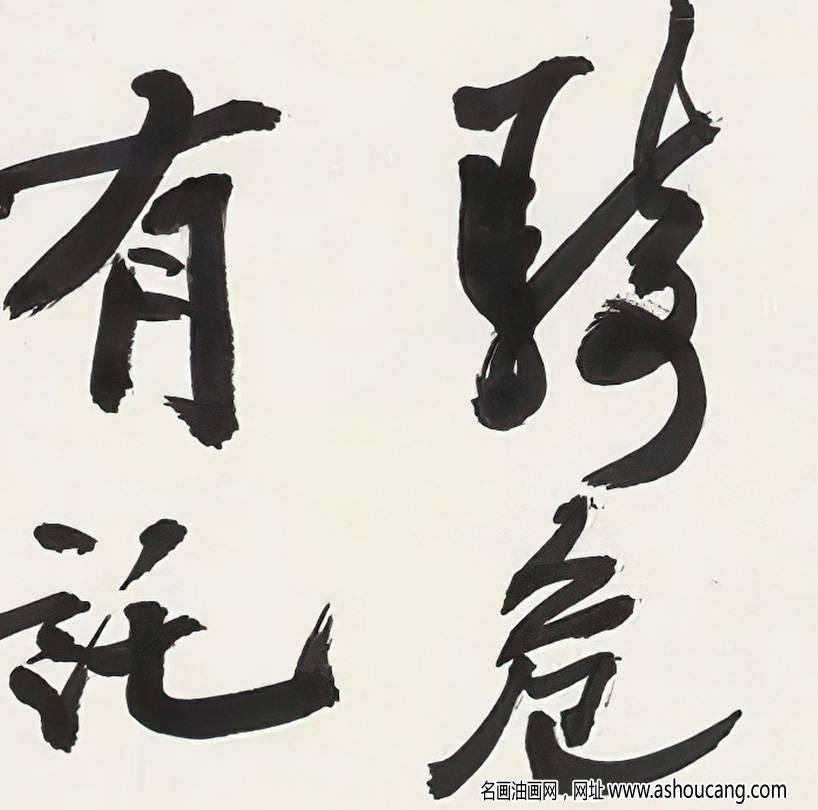 危
有
託
名画油画网，网址 www.ashoucang.com